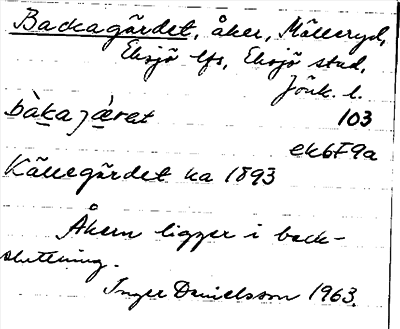 Backagärdet, åker, Mälleryd,
Eksjö lfs, Eksjö stad,
Jönk. l.
bàkajæ̀rat 103
ek6F9a
Källegärdet ka 1893
Åkern ligger i back-
sluttning.
Inger Danielsson 1963.